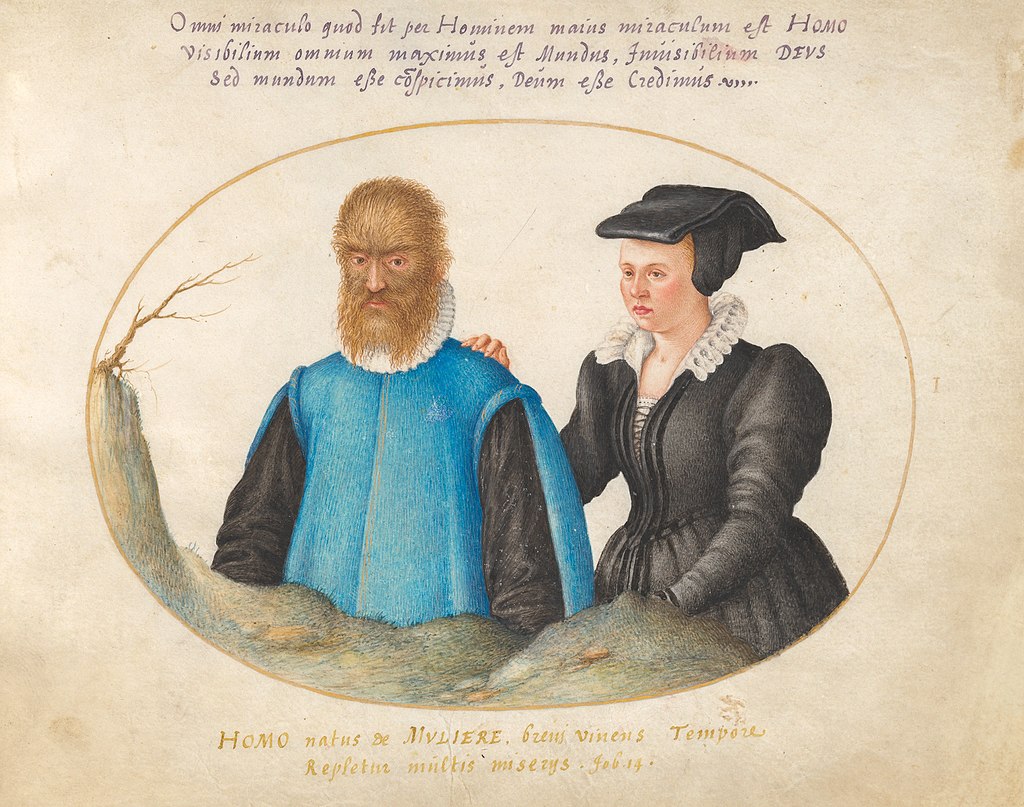 Omni miraculo quod fit per Hominem maius miraculum est HOMO
Visibilium omnium maximus est Mundus, Inuisibilium DEVS
Sed mundum esse cōspicimus, Deum esse Credimus
I
HOMO natus de MVLIERE, breui viuens Tempore
Repletur multis miserys. Job. 14.